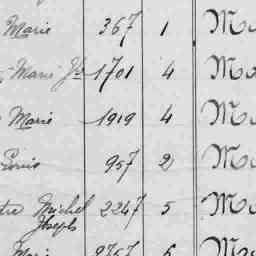 Marie 367 1 Ma
Marie Jh 1701 4 Ma
Marie 1919 4 Ma
Louis 957 2 Ma
tre Michel 2247 5 Ma
Joseph
Marie 9767 6 Ma